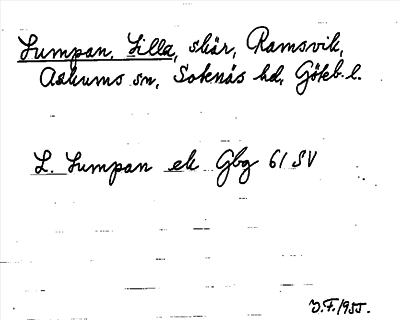 Lumpan, Lilla, skär, Ramsvik,
Askums sn, Sotenäs hd, Göteb. l.
L. Lumpan ek Gbg 61 SV
J.F. 1955.